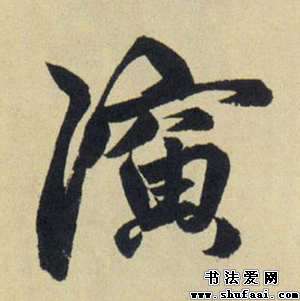 演
书法爱网
www.shufaai.com